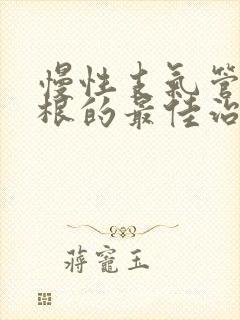 慢性支氣管
根的最佳治
蔣寵玉